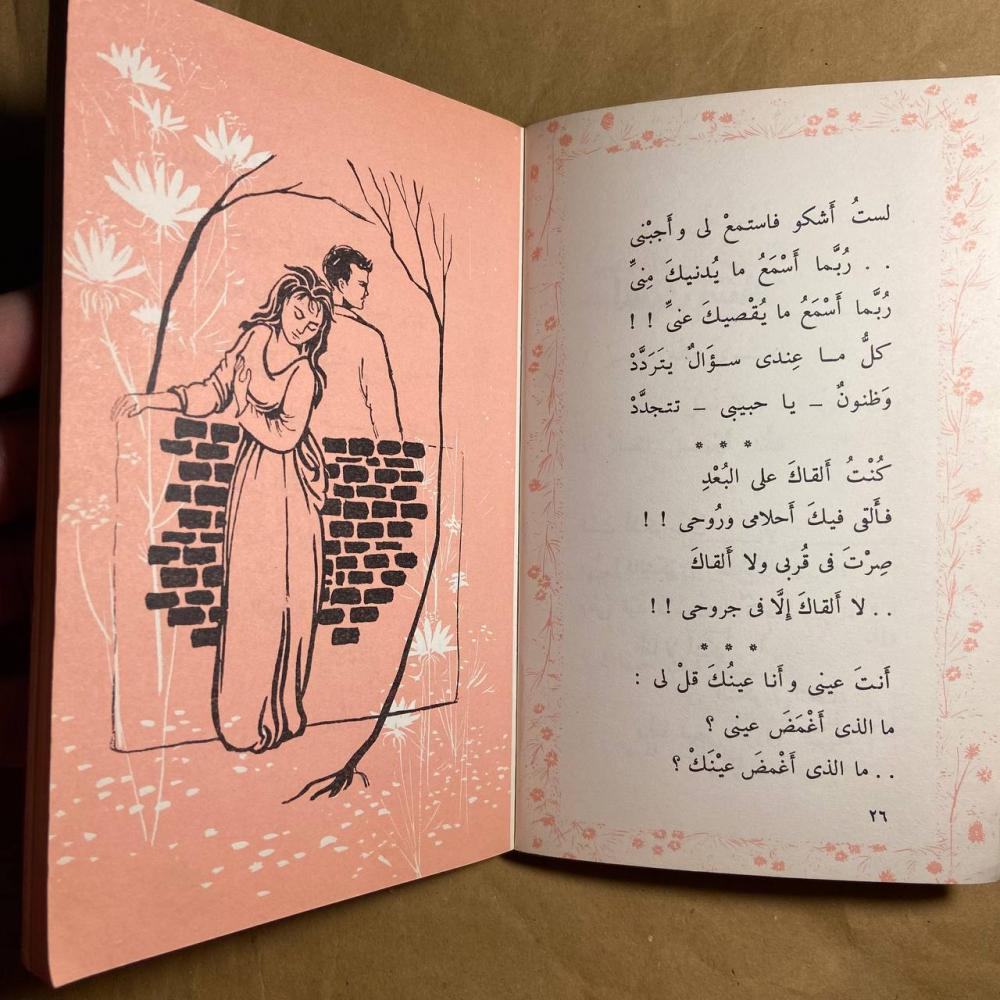 لستُ أَشكو فاستمعْ لى وأَجبْنى
. . رُبَّما أَسْمَعُ ما يُدنيكَ مِنىِّ
رُبَّما أَسْمَعُ ما يُقْصيكَ عنىِّ ! !
كلُّ مـا عِندى سـؤَالٌ يتَرَدَّدْ
وَظنونٌ – يا حبيبى – تتجدَّدْ
* * *
كُنْتُ أَلقاكَ على البُعْدِ
فأَلقى فيكَ أَحلامى ورُوحى ! !
صِرْتَ فى قُربى ولا أَلقاكَ
. . لا أَلقاكَ إِلَّا فى جروحى ! !
* * *
أَنتَ عينى وأَنا عينُكَ قلْ لى :
ما الذى أَغْمَضَ عينى ؟
. . ما الذى أَغْمضَ عيْنَكْ ؟
٢٦